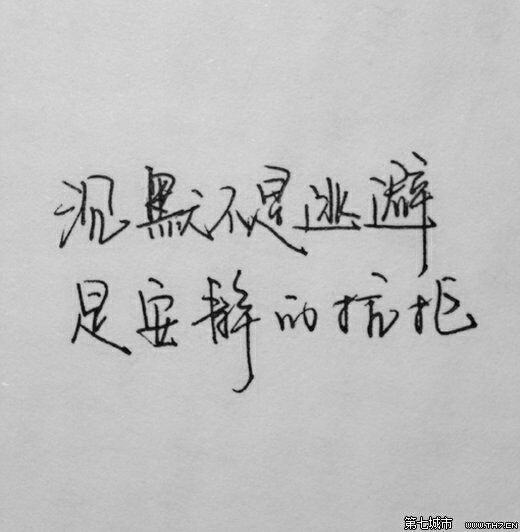 沉默不是逃避
是安静的抗拒
第七城市 WWW.TH7.CN